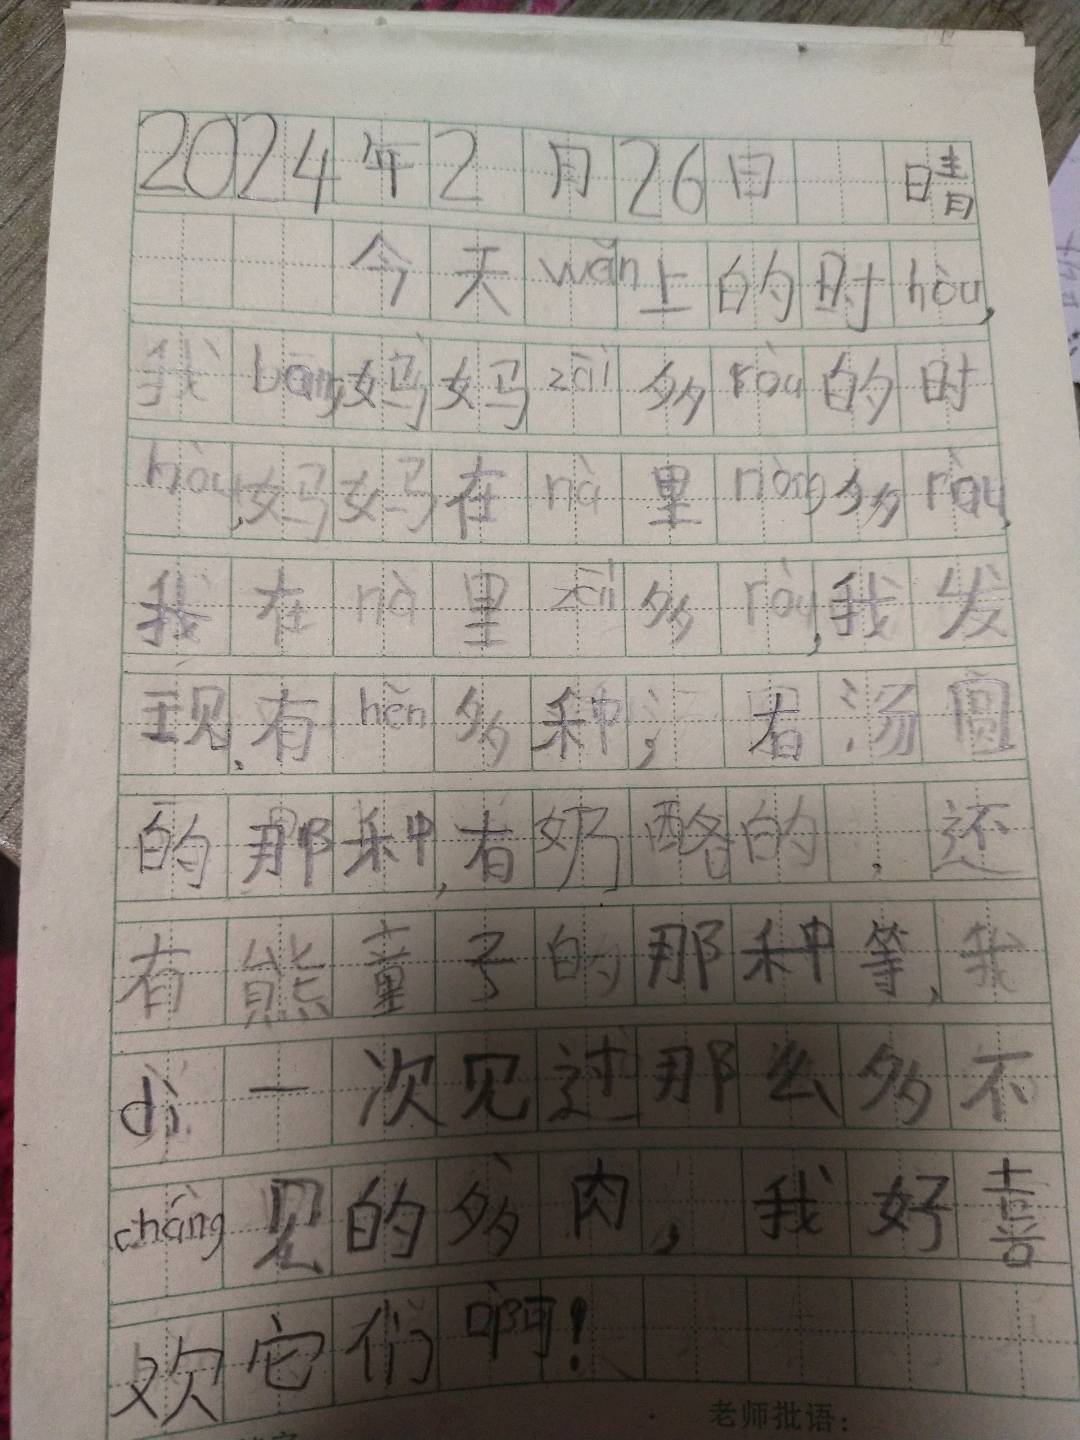 2024年2月26日 晴
今天wǎn上的时hòu,
我bāng妈妈zāi多ròu的时
hòu,妈妈在nà里nòng多ròu,
我在nà里zāi多ròu,我发
现,有hěn多种,有汤圆
的那种,有奶酪的,还
有熊童子的那种等,我
dì一次见过那么多不
cháng见的多肉,我好喜
欢它们啊!
老师批语: